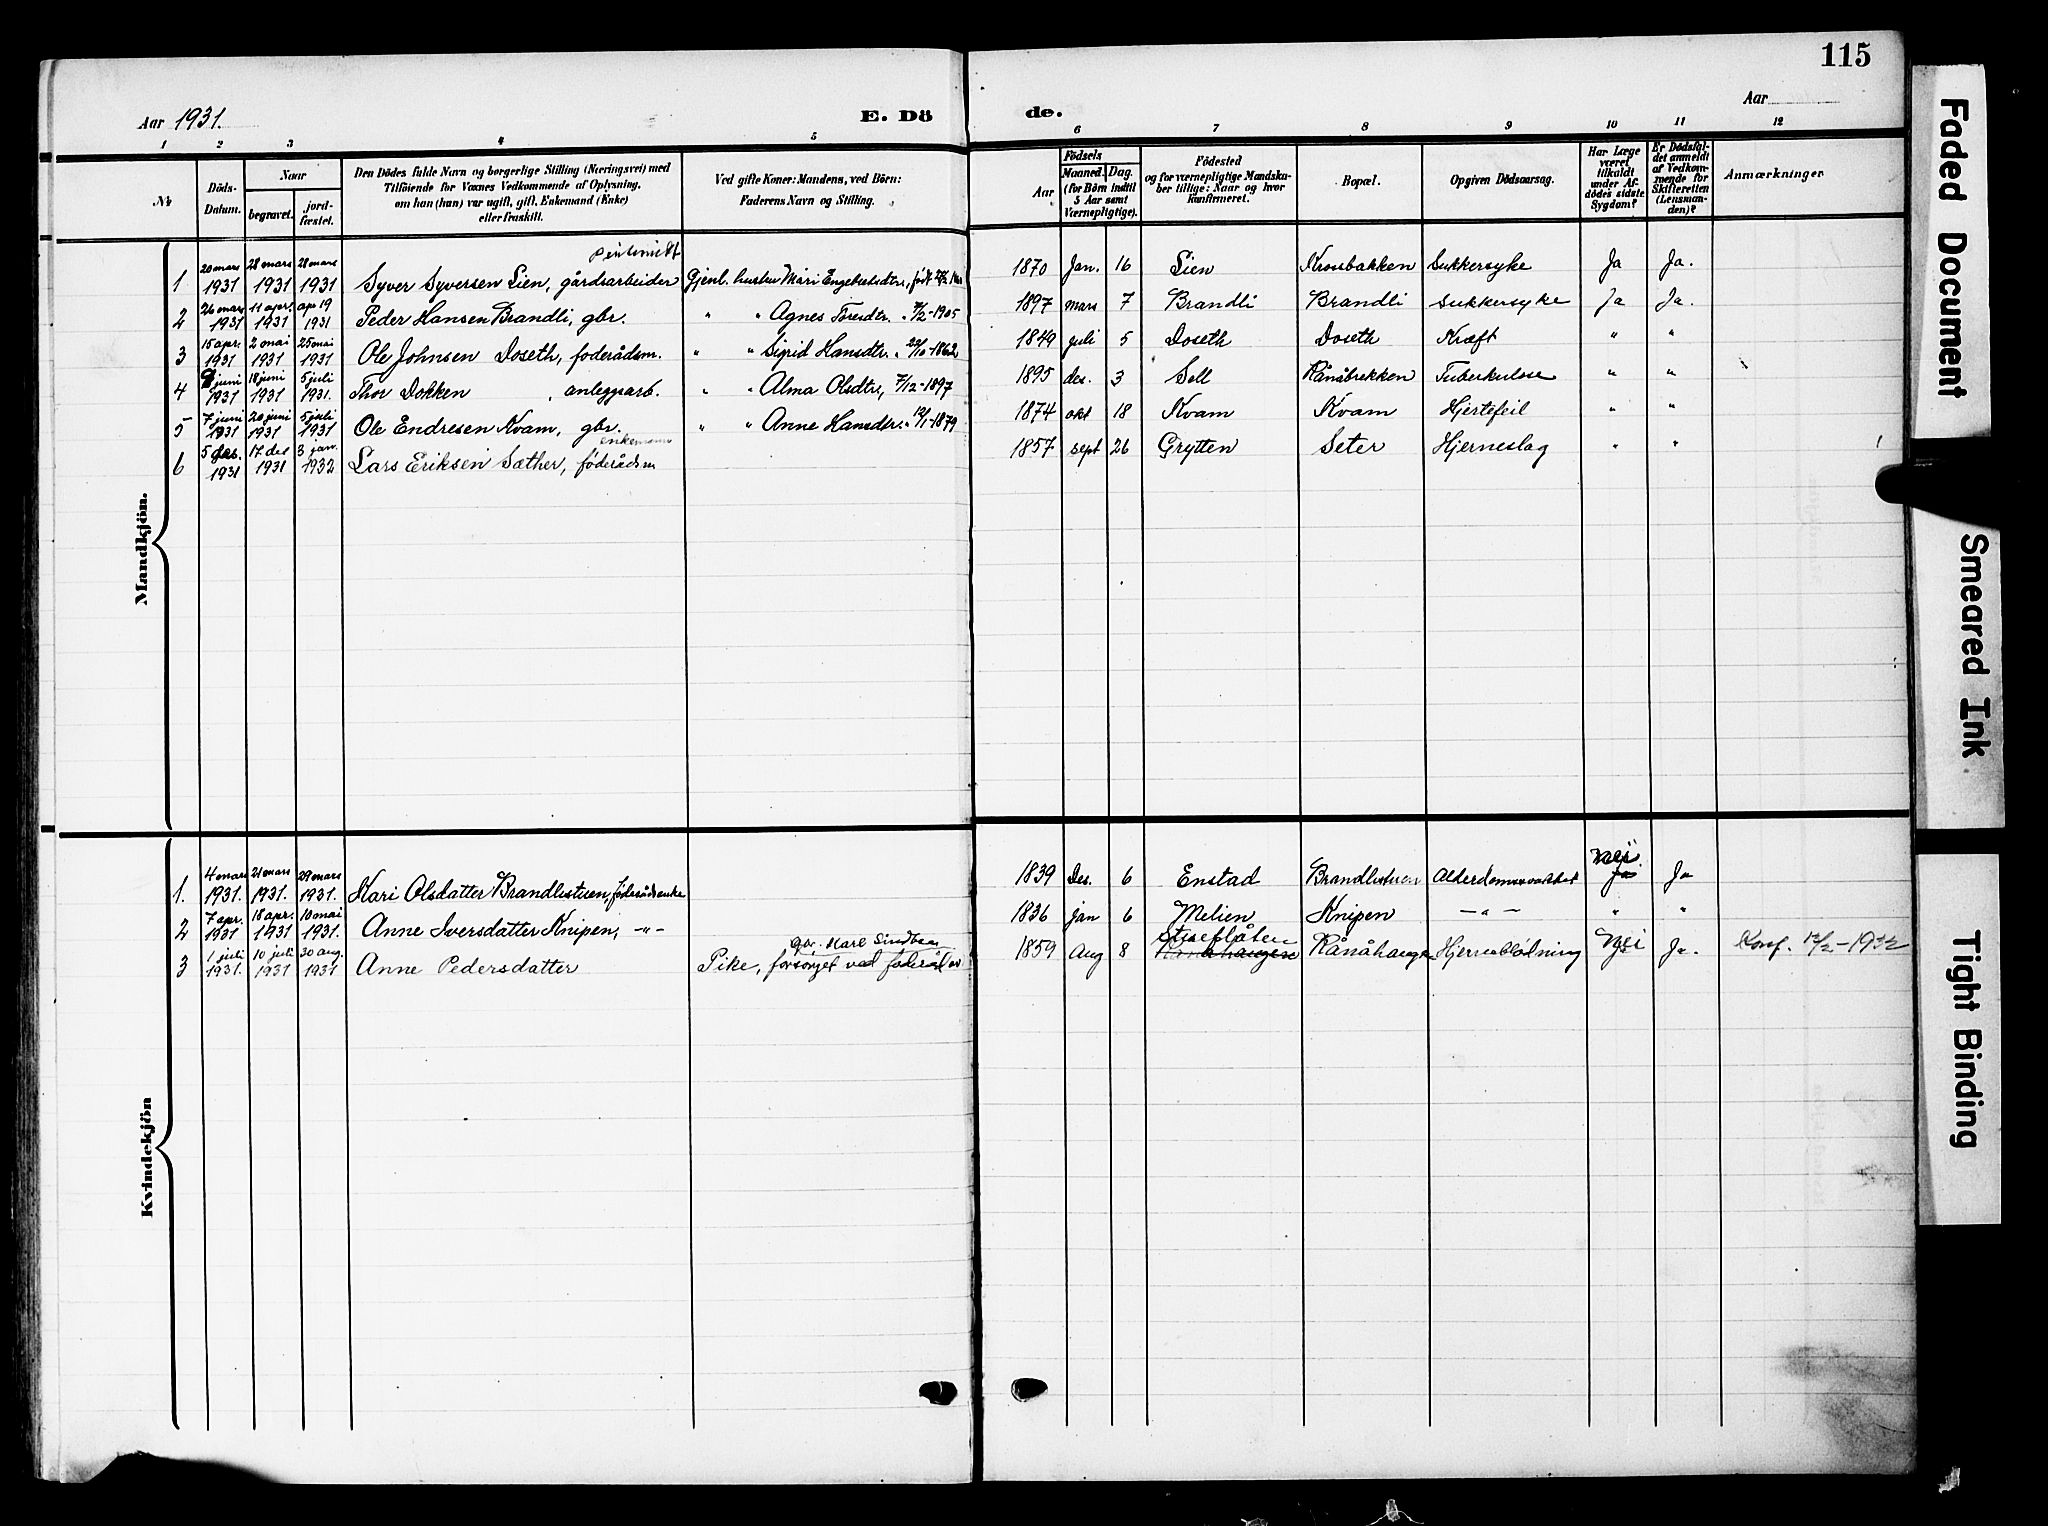 115
Aar 1931.
E. Dö
de.
Aar
1 2 3 4 5 6 7 8 9 10 11 12
No
Döds-Datum.
Naar
begravet.
jord-fæstet.
Den Dödes fulde Navn og borgerlige Stilling (Næringsvei) med
Tilföiende for Voxnes Vedkommende af Oplysning,
om han (hun) var ugift, gift, Enkemand (Enke)
eller fraskilt.
Ved gifte Koner: Mandens, ved Börn:
Faderens Navn og Stilling.
Födsels
Aar
Maaned. Dag.
(for Börn indtil
5 Aar samt
Værnepligtige).
Födested
og for værnepligtige Mandska-
ber tillige: Naar og hvor
konfirmeret.
Bopæl.
Opgiven Dödsaarsag.
Har Læge
været
tilkaldt
under Af-
dödes sidste
Sygdom?
Er Dödsfal-
det anmeldt
af Vedkom-
mende for
Skifteretten
(Lensman-
den)?
Anmærkninger
Mandkjön.
1 20 mars 1931 28 mars 1931 28 mars 1931 Syver Syversen Lien, gårdsarbeider Gjenl. hustru Mari Engebretsdtr., født 1870 Jan. 16 Lien Krossbakken Sukkersyke Ja Ja.
2 26 mars 1931 11 apr. 1931 apr 19 1931 Peder Hansen Brandli, gbr. " " Agnes Toresdtr. " 7/2-1905 1897 mars 7 Brandli Brandli Sukkersyke Ja Ja.
3 15 apr. 1931 2 mai 1931 25 mai 1931 Ole Johnsen Doseth, foderådsm. " " Sigrid Hansdtr. " 29/10-1862 1849 juli 5 Doseth Doseth Kræft " "
4 9 juni 1931 18 juni 1931 5 juli 1931. Thor Dokken, anleggsarb. " " Alma Olsdtr, 7/12-1897 1895 des. 3 Sell Rånåbrekken Tuberkulose " "
5 7 juni 1931 20 juni 1931 5 juli 1931 Ole Endresen Kvam, gbr. " " Anne Hansdtr. " 12/1-1879 1874 okt 18 Kvam Kvam Hjertefeil " "
6 5 des. 1931 17 des 1931 3 jan. 1932 Lars Eriksen Sæther, føderådsm enkemann 1857 sept 26 Grytten Seter Hjerneslag " "
Kvindekjön
1. 4 mars 1931. 21 mars 1931. 29 mars 1931. Kari Olsdatter Brandlistuen, føderådsenke 1839 Des. 6 Enstad Brandlistuen Nei Ja Ja
2 7 apr. 1931 18 apr. 1931 10 mai 1931. Anne Iversdatter Knipen, -"- 1836 jan 6 Melien Knipen -"- " "
3 1 juli 1931. 10 juli 1931 30 aug. 1931 Anne Pedersdatter Pike, forsørget ved gbr. Karl 1859 Aug 8 Stueflåten Rånåhaugen Hjerneblødning Nei Ja. Konf.
Faded Document
Smeared Ink
Tight Binding